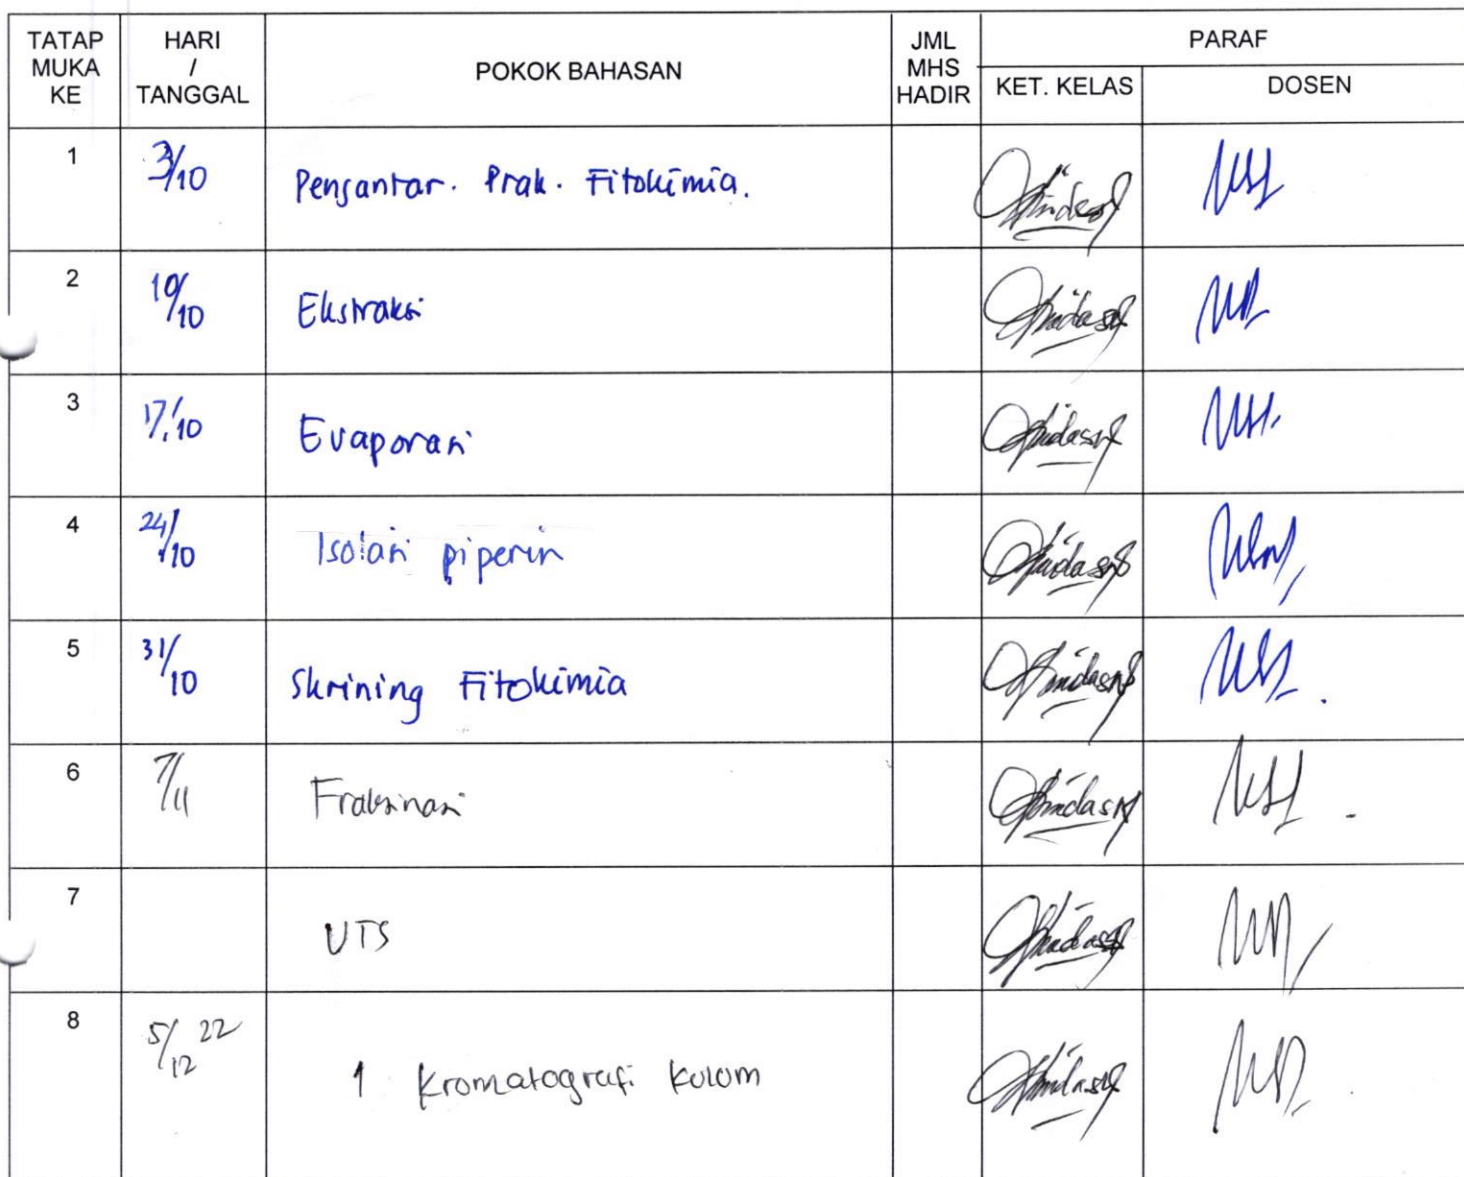 TATAP MUKA KE
HARI / TANGGAL
POKOK BAHASAN
JML MHS HADIR
PARAF
KET. KELAS
DOSEN
1 3/10 Pengantar. Prak. Fitokimia.
2 10/10 Ekstraksi
3 17/10 Evaporasi
4 24/10 Isolasi piperin
5 31/10 Skrining Fitokimia
6 7/11 Fraksinasi
7 UTS
8 5/12 22 1 Kromatografi Kolom